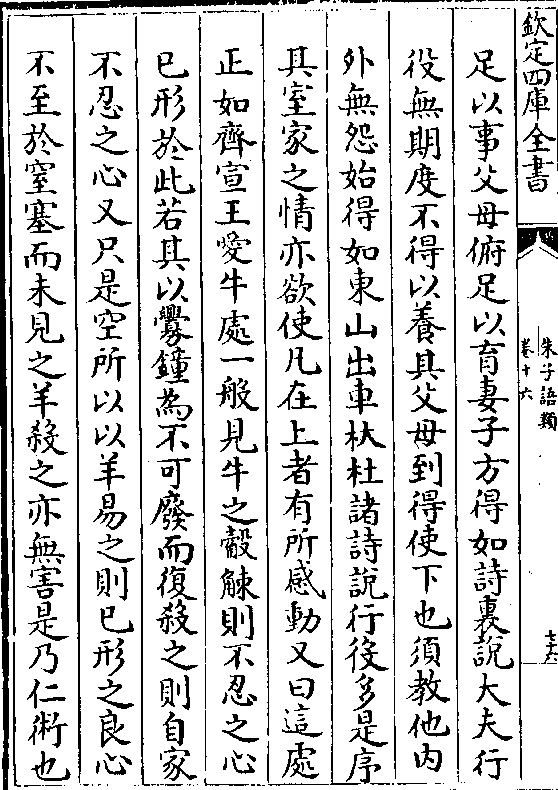 欽定四庫全書
朱子語類
卷十六
足以事父母俯足以育妻子方得如詩裏說大夫行
役無期度不得以養其父母到得使下也須教他內
外無怨始得如東山出車杕杜諸詩說行役多是序
其室家之情亦欲使凡在上者有所感動又曰這處
正如齊宣王愛牛處一般見牛之觳觫則不忍之心
已形於此若其以釁鐘為不可廢而復殺之則自家
不忍之心又只是空所以以羊易之則已形之良心
不至於窒塞而未見之羊殺之亦無害是乃仁術也